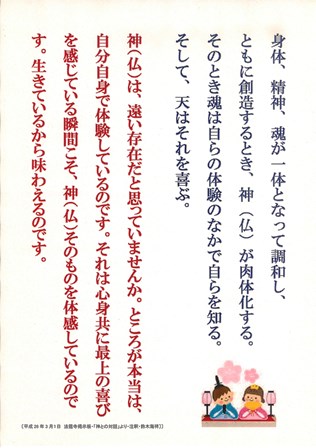 身体、精神、魂が一体となって調和し、
ともに創造するとき、神（仏）が肉体化する。
そのとき魂は自らの体験のなかで自らを知る。
そして、天はそれを喜ぶ。
神（仏）は、遠い存在だと思っていませんか。ところが本当は、
自分自身で体験しているのです。それは心身共に最上の喜び
を感じている瞬間こそ、神（仏）そのものを体感しているので
す。生きているから味わえるのです。
（平成26年3月1日 法話今掲示板・「神との対話」より・注釈・鈴木海祥）